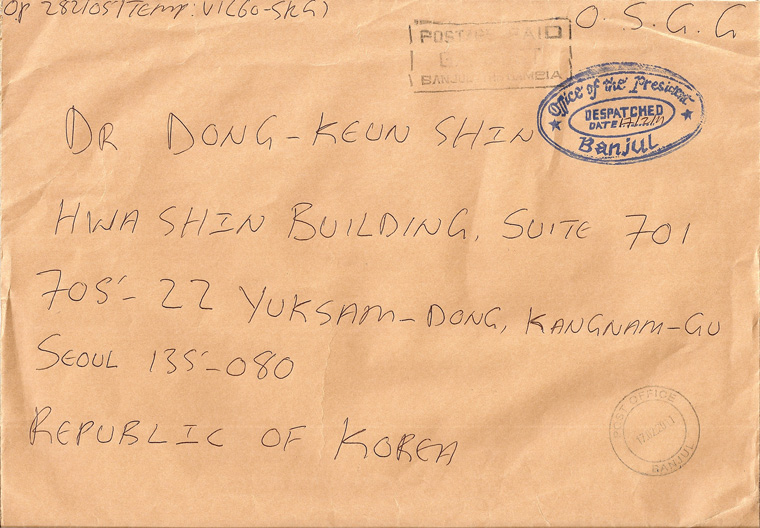 OP 282/05/Temp: VI(60-SKG)
O. S. G. G
POSTAGE PAID
BANJUL THE GAMBIA
Office of the President
DESPATCHED
DATE
Banjul
DR DONG-KEUN SHIN
HWA SHIN BUILDING, SUITE 701
705-22 YUKSAM-DONG, KANGNAM-GU
SEOUL 135-080
REPUBLIC OF KOREA
POST OFFICE
BANJUL